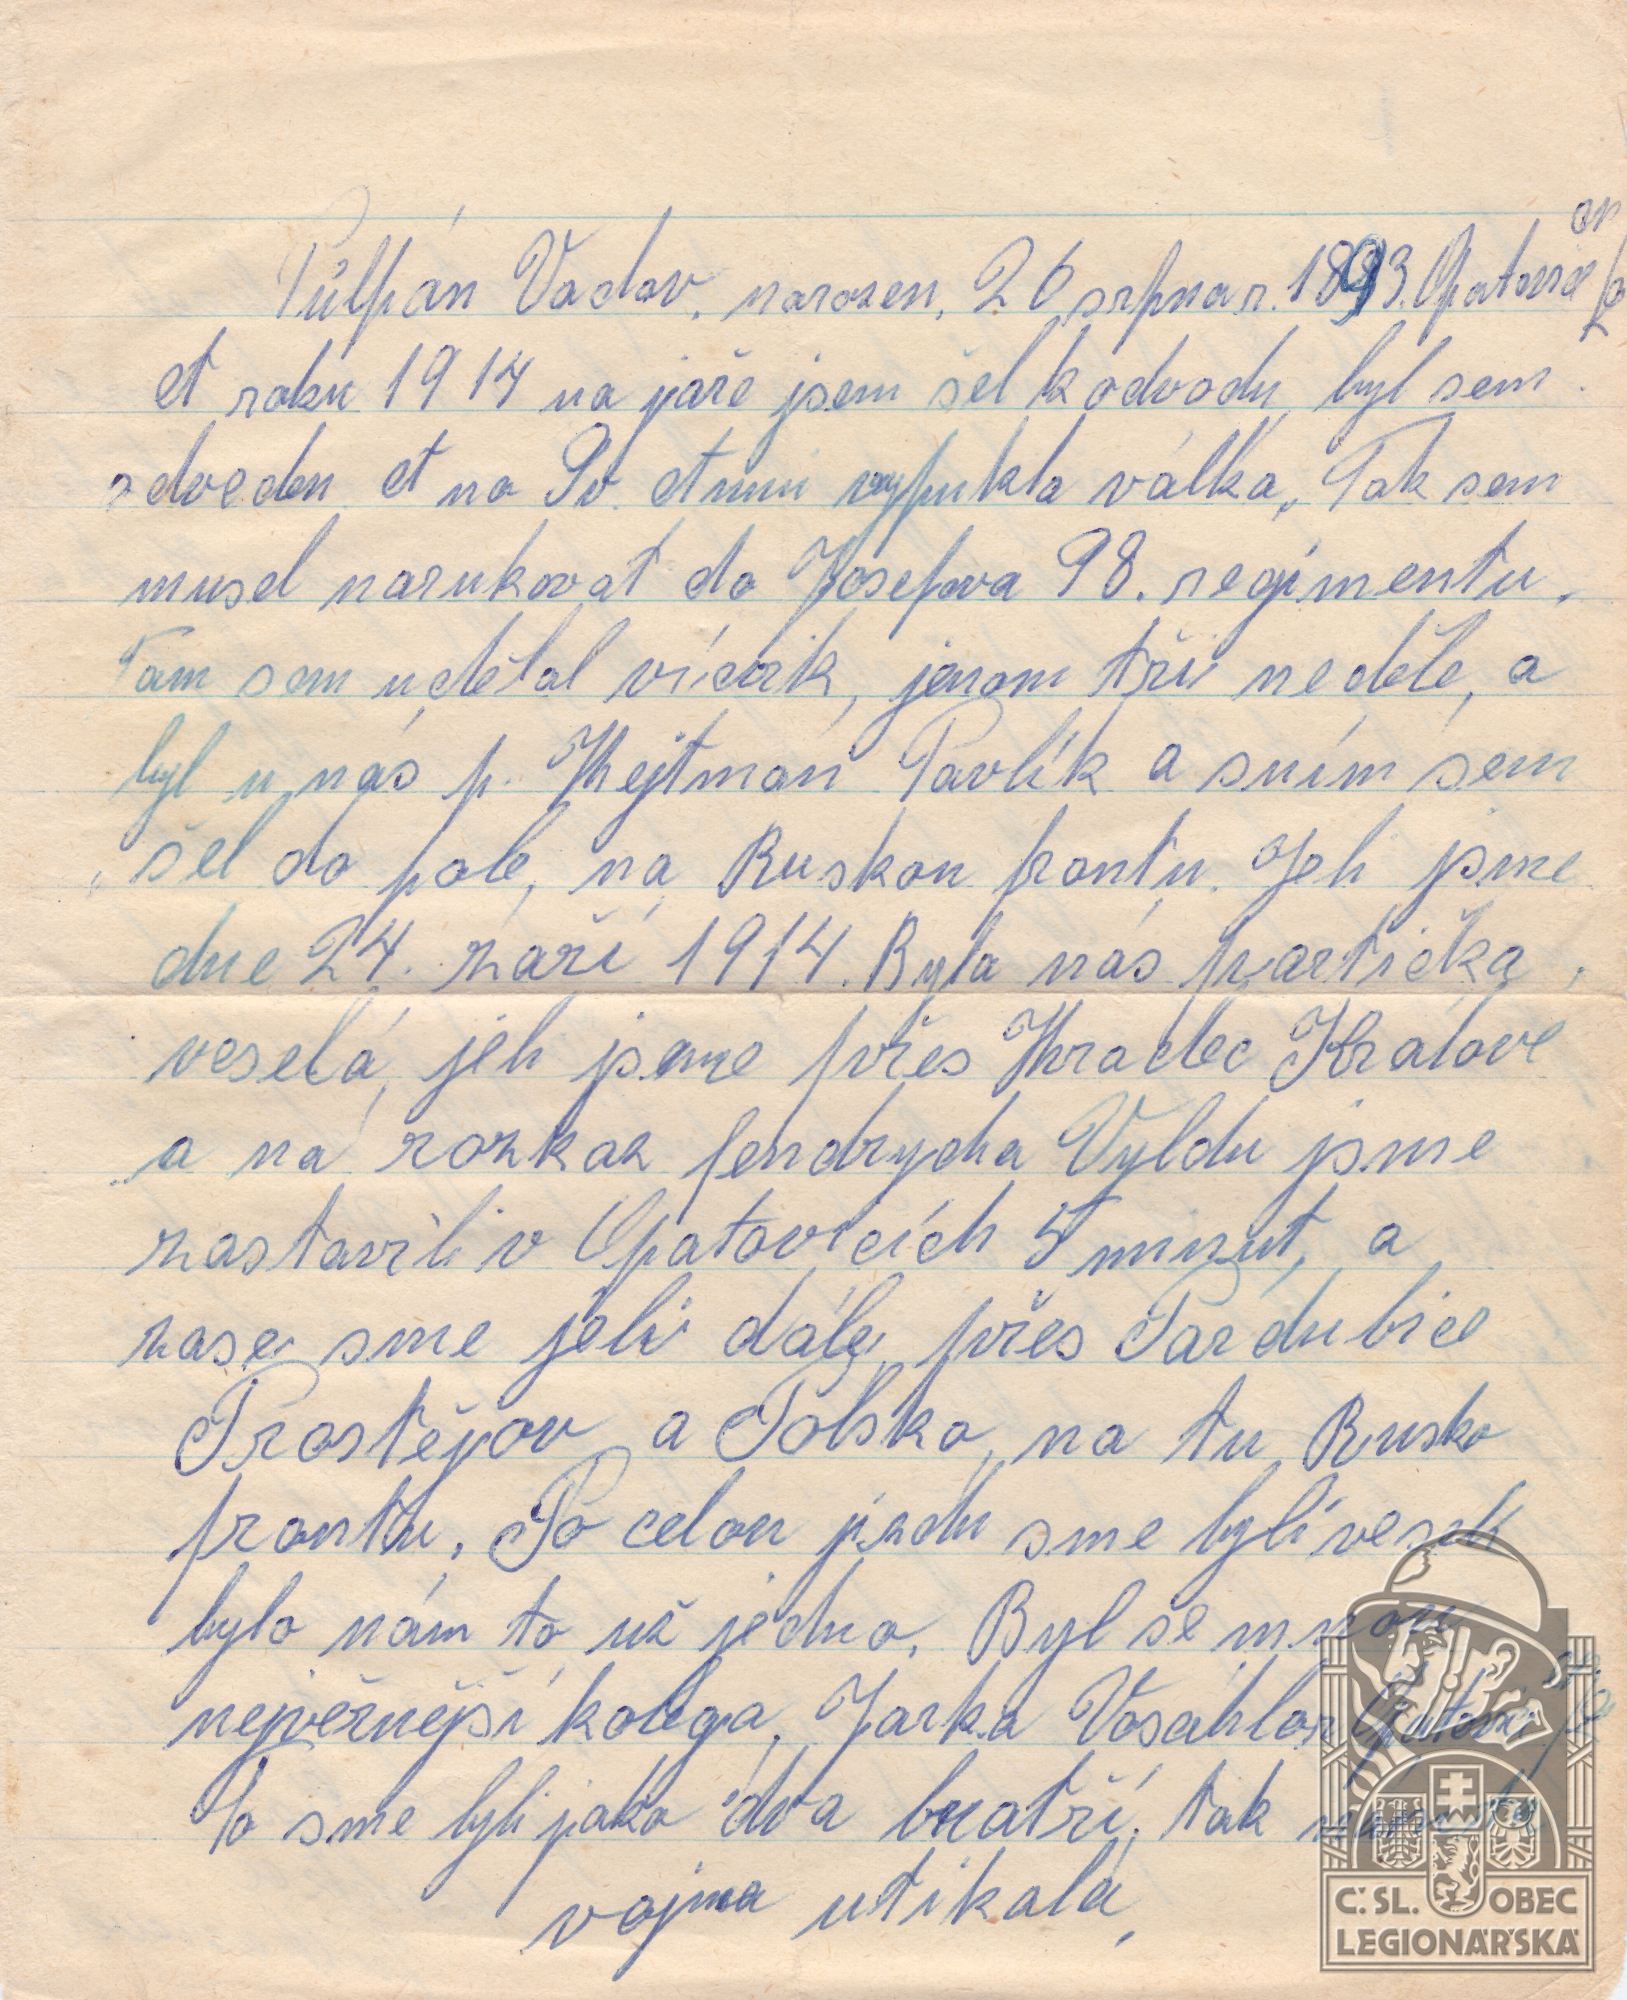 Půlpán Vaclav, narozen, 26 srpna r. 1893. Opatovice
roku 1914 na jaře jsem šel k odvodu, byl sem
odveden na vypukla válka, Tak sem
musel narukovat do Josefova 98. regimentu,
Tam sem udělal vícvik, jenom tři neděle, a
byl u nás p. Hejtmán Pavlík a sním sem
šel do pole, na Ruskou frontu. Jeli jsme
dne 24. září 1914. Byla nás partička,
veselá, jeli jsme přes Hradec Kralove
a na rozkaz fendrycha Vyldu jsme
zastavili v Opatovicích 5 minut, a
zase sme jeli dále, přes Pardubice
Prostějov a Polsko, na tu Rusko
frontu, Po celou jízdu sme byli veseli
bylo nám to už jedno, Byl se mnou
nejvěrnější kolega, Jarka Vosáhlo
To sme byli jako dva bratří, tak nám ta
vojna utikala,
Č.SL. OBEC
LEGIONÁŘSKÁ